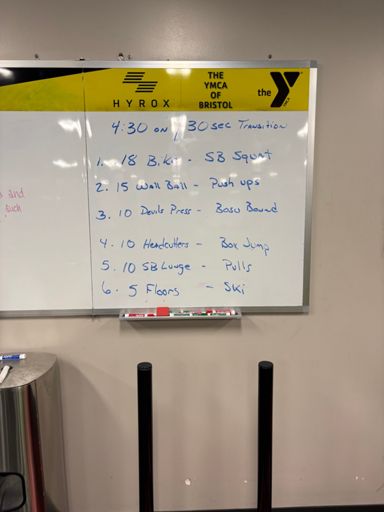 HYROX
THE
YMCA
OF
BRISTOL
the Y
YMCA
4:30 on / 30 sec Transition
1. 18 Bike - SB Squat
2. 15 Wall Ball - Push ups
3. 10 Devils Press - Bosu Bound
4. 10 Headcutters - Box Jump
5. 10 SB Lunge - Pulls
6. 5 Floors - Ski
and
each